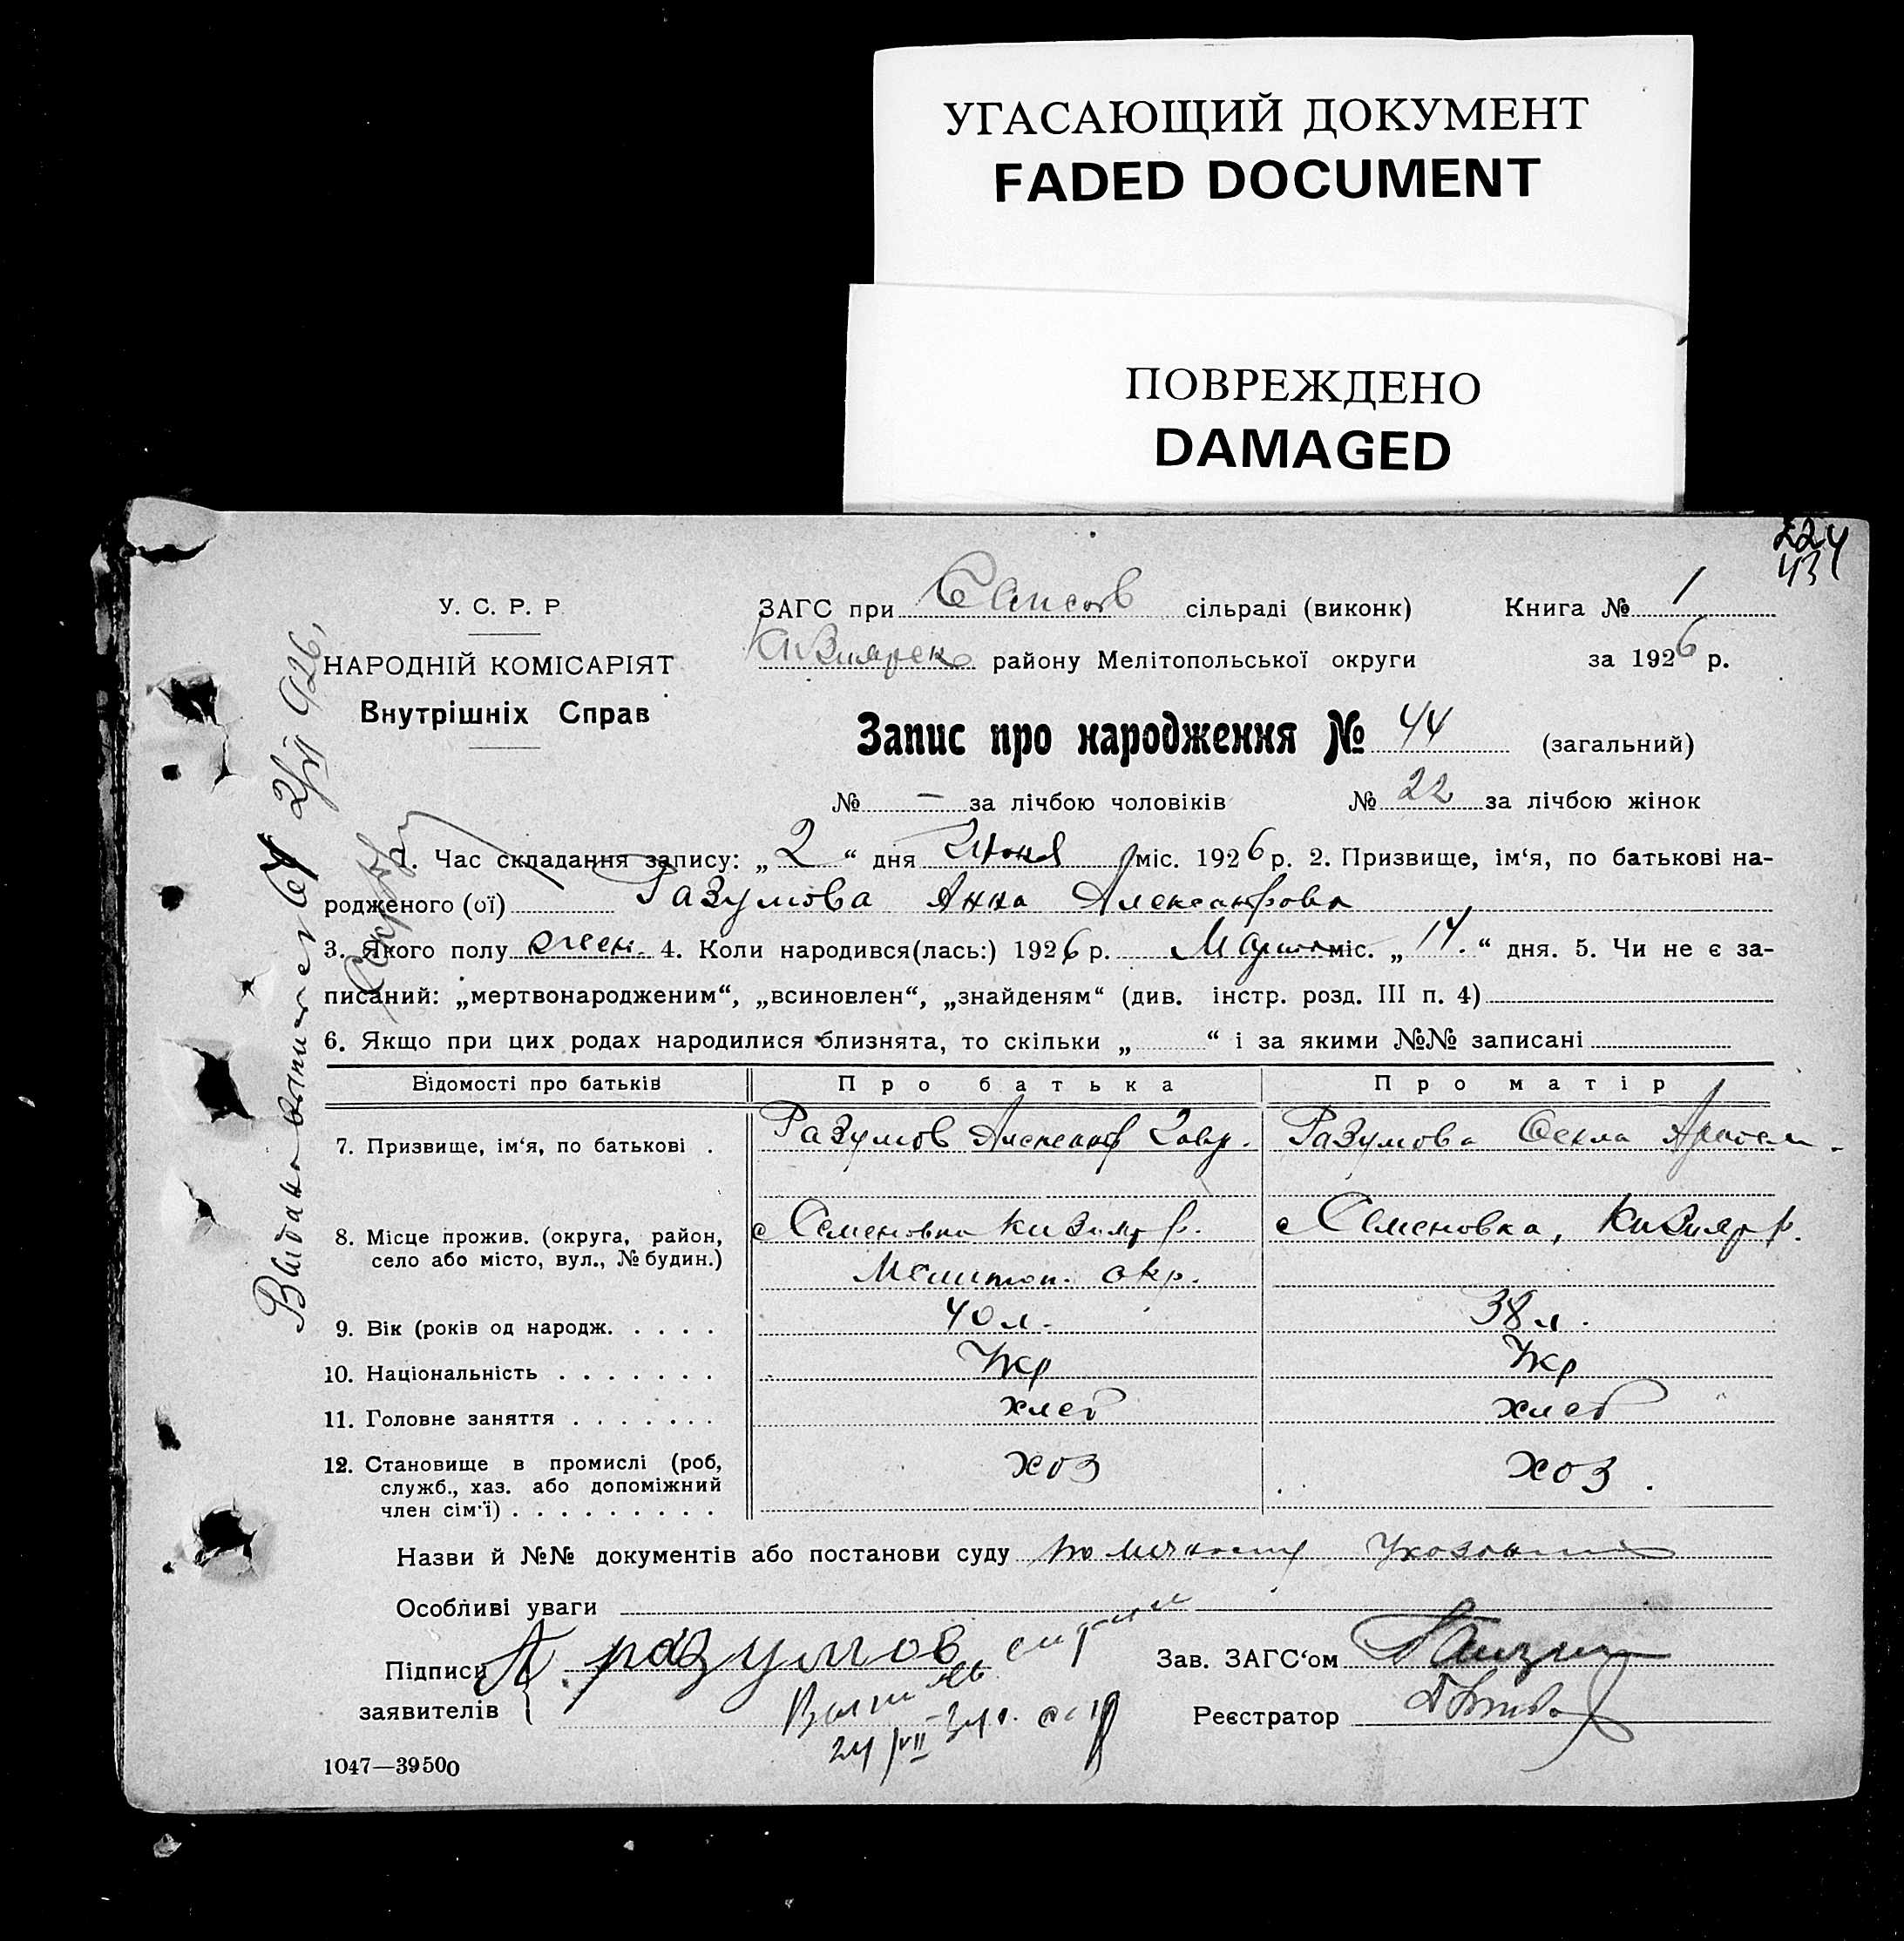 УГАСАЮЩИЙ ДОКУМЕНТ
FADED DOCUMENT
ПОВРЕЖДЕНО
DAMAGED
224
43
У. С. Р. Р
НАРОДНІЙ КОМІСАРІЯТ
Внутрішніх Справ
ЗАГС при сільраді (виконк) Книга № 1
району Мелітопольської округи за 1926 р.
Запис про народження № 44 (загальний)
№ — за лічбою чоловіків № 22 за лічбою жінок
1. Час складання запису: „ 2 “ дня Июня міс. 1926 р. 2. Призвище, ім‘я, по батькові на-
родженого (ої) Разумова Анна Александровн
3. Якого полу женс. 4. Коли народився(лась:) 1926 р. Марта міс. „ 14. “ дня. 5. Чи не є за-
писаний: „мертвонародженим“, „всиновлен“, „знайденям“ (див. інстр. розд. III п. 4)
6. Якщо при цих родах народилися близнята, то скільки „ “ і за якими №№ записані
Відомості про батьків Про батька Про матір
7. Призвище, ім‘я, по батькові . Разумов Александ Разумова Фекла
8. Місце прожив. (округа, район, с Семеновка Кизияр р. с Семеновка, Кизияр р.
село або місто, вул., № будин.) Мелитоп. окр.
9. Вік (років од народж. . . . . 40 л. 38 л.
10. Національність . . . . . . . Укр Укр
11. Головне заняття . . . . . . . хлеб хлеб
12. Становище в промислі (роб, хоз хоз
служб., хаз. або допоміжний
член сім‘ї) . . . . . . . . .
Назви й №№ документів або постанови суду по личному
Особливі уваги
Підписи А разумов Зав. ЗАГС‘ом
заявителів Реєстратор
24/VII
1047—39500
Видана 926